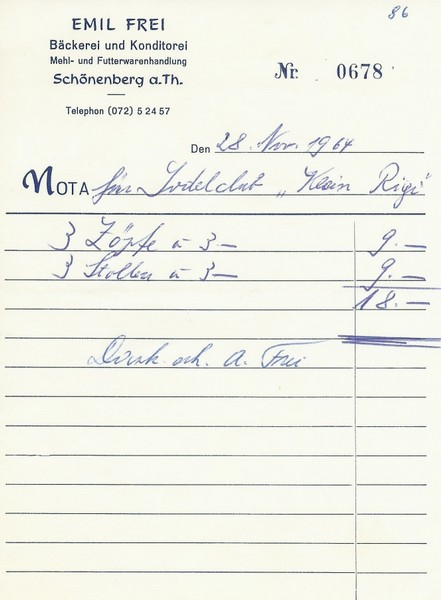 86
EMIL FREI
Bäckerei und Konditorei
Mehl- und Futterwarenhandlung
Schönenberg a.Th.
Telephon (072) 5 24 57
Nr. 0678
Den 28. Nov. 1964
NOTA für Jodelclub „Klein Rigi"
3 Zöpfe à 3.— 9.—
3 Stollen à 3.— 9.—
18.—
Dank. erh. A. Frei